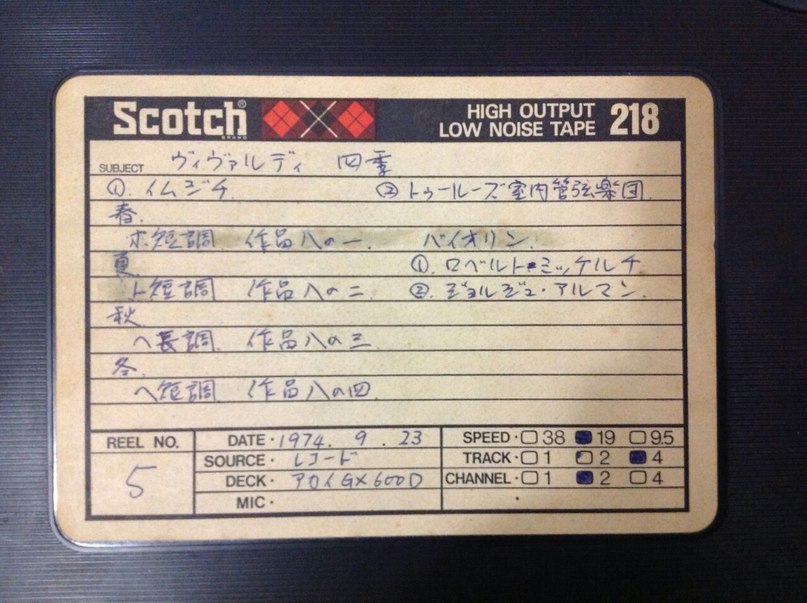 Scotch® HIGH OUTPUT
BRAND LOW NOISE TAPE 218
SUBJECT ヴィヴァルディ 四季
①. イムジチ ②トゥールーズ室内管弦楽団
春.
ホ短調 作品八の一. バイオリン.
夏 ①. ロベルト・ミッケルチ
ト短調 作品八の二 ②. ジョルジュ・アルマン.
秋
ヘ長調. 作品八の三
冬.
ヘ短調 作品八の四
REEL NO. DATE・1974. 9. 23 SPEED・ 38 19 9.5
5 SOURCE・ レコード TRACK・ 1 2 4
DECK・ アカイGX600D CHANNEL・ 1 2 4
MIC・